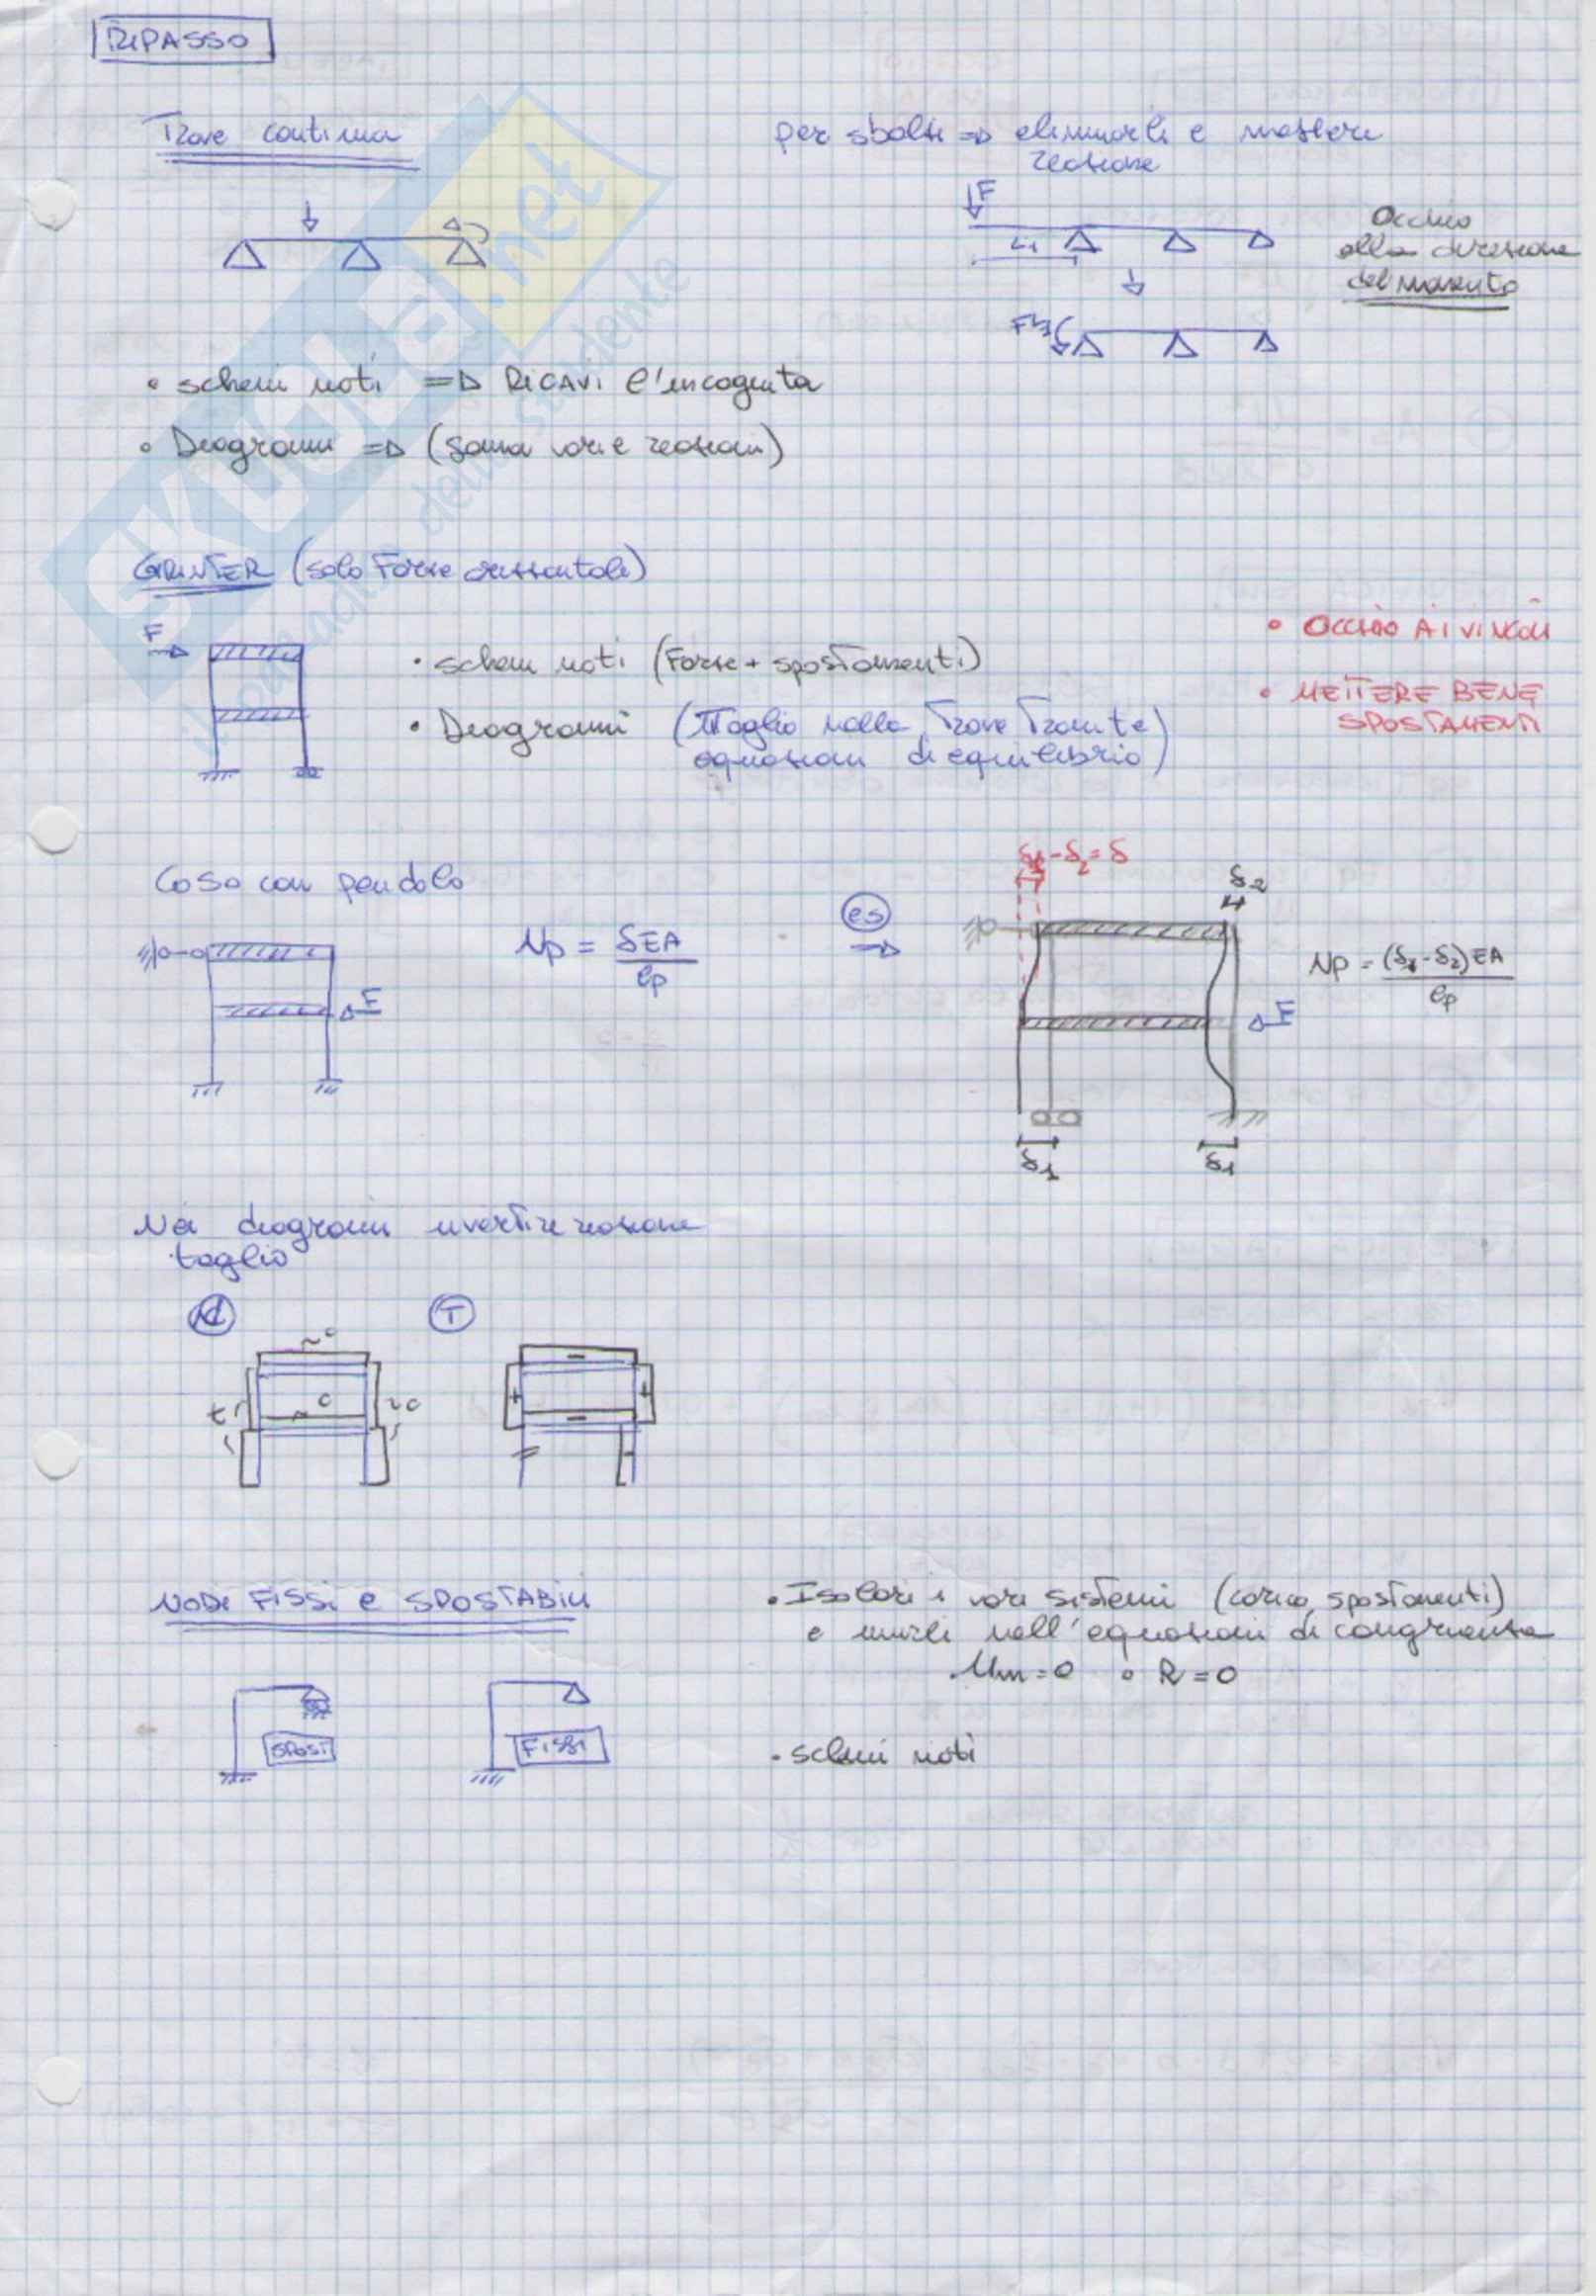 RIPASSO
Trave continua
per sbalzi => eliminarli e mettere
reazione
F
L1
Occhio
alla direzione
del momento
FL1
• schemi noti => Ricavi l'incognita
• Diagrammi => (somma varie reazioni)
GRINTER (solo Forze orizzontali)
F
• schemi noti (Forze + spostamenti)
• Diagrammi (Il taglio nella Trave Tramite
equazioni di equilibrio)
• OCCHIO AI VINCOLI
• METTERE BENE
SPOSTAMENTI
Caso con pendolo
F
Np = δEA / lp
es
δ1-δ2=δ
δ2
F
δ1
δ1
Np = (δ1-δ2)EA / lp
Nei diagrammi invertire reazione
taglio
N
c
t
c
c
T
-
+
+
-
-
NODI FISSI e SPOSTABILI
SPOST
FISSI
• Isolare i vari sistemi (carico, spostamenti)
e unirli nell'equazioni di congruenza
Mm=0 o R=0
• schemi noti
SKUOLA.net
il paradiso dello studente